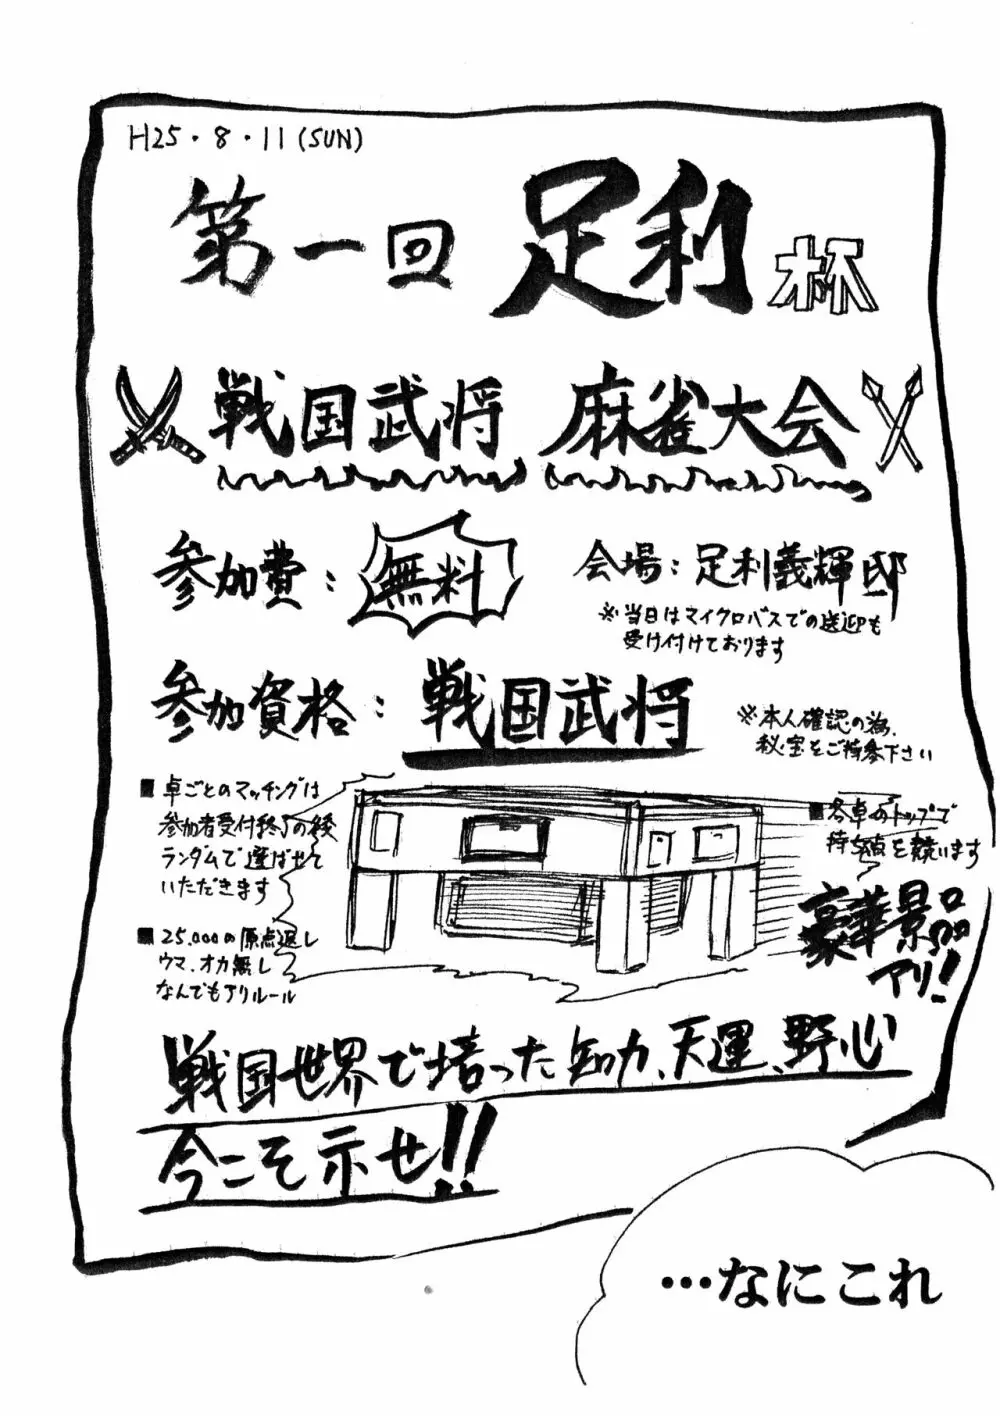 H25・8・11(SUN)
第一回 足利杯
戦国武将 麻雀大会
参加費:無料
会場:足利義輝邸
※当日はマイクロバスでの送迎も
受け付けております
参加資格:戦国武将
※本人確認の為、
秘宝をご持参下さい
■卓ごとのマッチングは
参加者受付終了の後
ランダムで選ばせて
いただきます
■各卓のトップで
持ち点を競います
豪華景品
アリ!
■25,000の原点返し
ウマ、オカ無し
なんでもアリルール
戦国世界で培った知力、天運、野心
今こそ示せ!!
…なにこれ